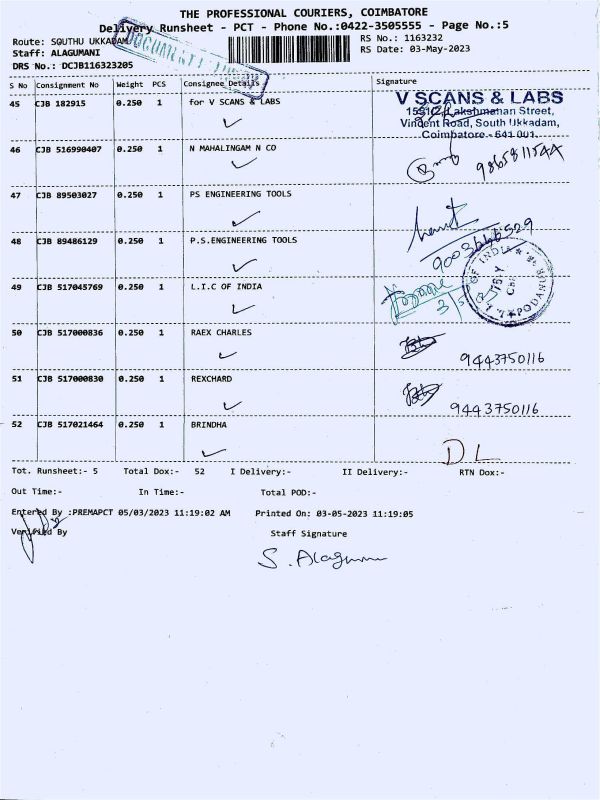 THE PROFESSIONAL COURIERS, COIMBATORE
Delivery Runsheet - PCT - Phone No.:0422-3505555 - Page No.:5
Route: SOUTHU UKKADAM
RS No.: 1163232
Staff: ALAGUMANI
RS Date: 03-May-2023
DRS No.: DCJB116323205
DOCUMENT
S No Consignment No Weight PCS Consignee Details Signature
45 CJB 182915 0.250 1 for V SCANS & LABS
V SCANS & LABS
Lakshmanan Street,
Vincent Road, South Ukkadam,
Coimbatore - 641 001.
46 CJB 516990407 0.250 1 N MAHALINGAM N CO
47 CJB 89503027 0.250 1 PS ENGINEERING TOOLS
48 CJB 89486129 0.250 1 P.S.ENGINEERING TOOLS
9003666529
49 CJB 517045769 0.250 1 L.I.C OF INDIA
OF INDIA
50 CJB 517000836 0.250 1 RAEX CHARLES
9443750116
51 CJB 517000830 0.250 1 REXCHARD
9443750116
52 CJB 517021464 0.250 1 BRINDHA
DL
Tot. Runsheet:- 5 Total Dox:- 52 I Delivery:- II Delivery:- RTN Dox:-
Out Time:- In Time:- Total POD:-
Entered By :PREMAPCT 05/03/2023 11:19:02 AM Printed On: 03-05-2023 11:19:05
Verified By Staff Signature
S. Alagumani